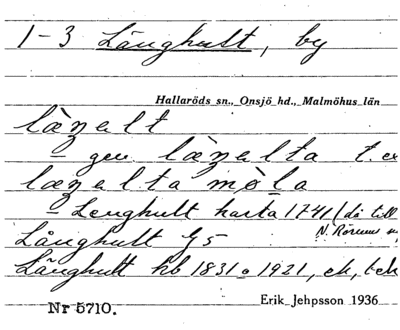 1-3 Långhult, by
Hallaröds sn., Onsjö hd., Malmöhus län
läŋalt
gen. läŋalta t. ex
læŋalta möla
Lenghult karta 1741 (då till
N. Rörums sn
Långhult G5
Långhult hb 1831 o 1921, ek,
Nr 5710.
Erik Jehpsson 1936